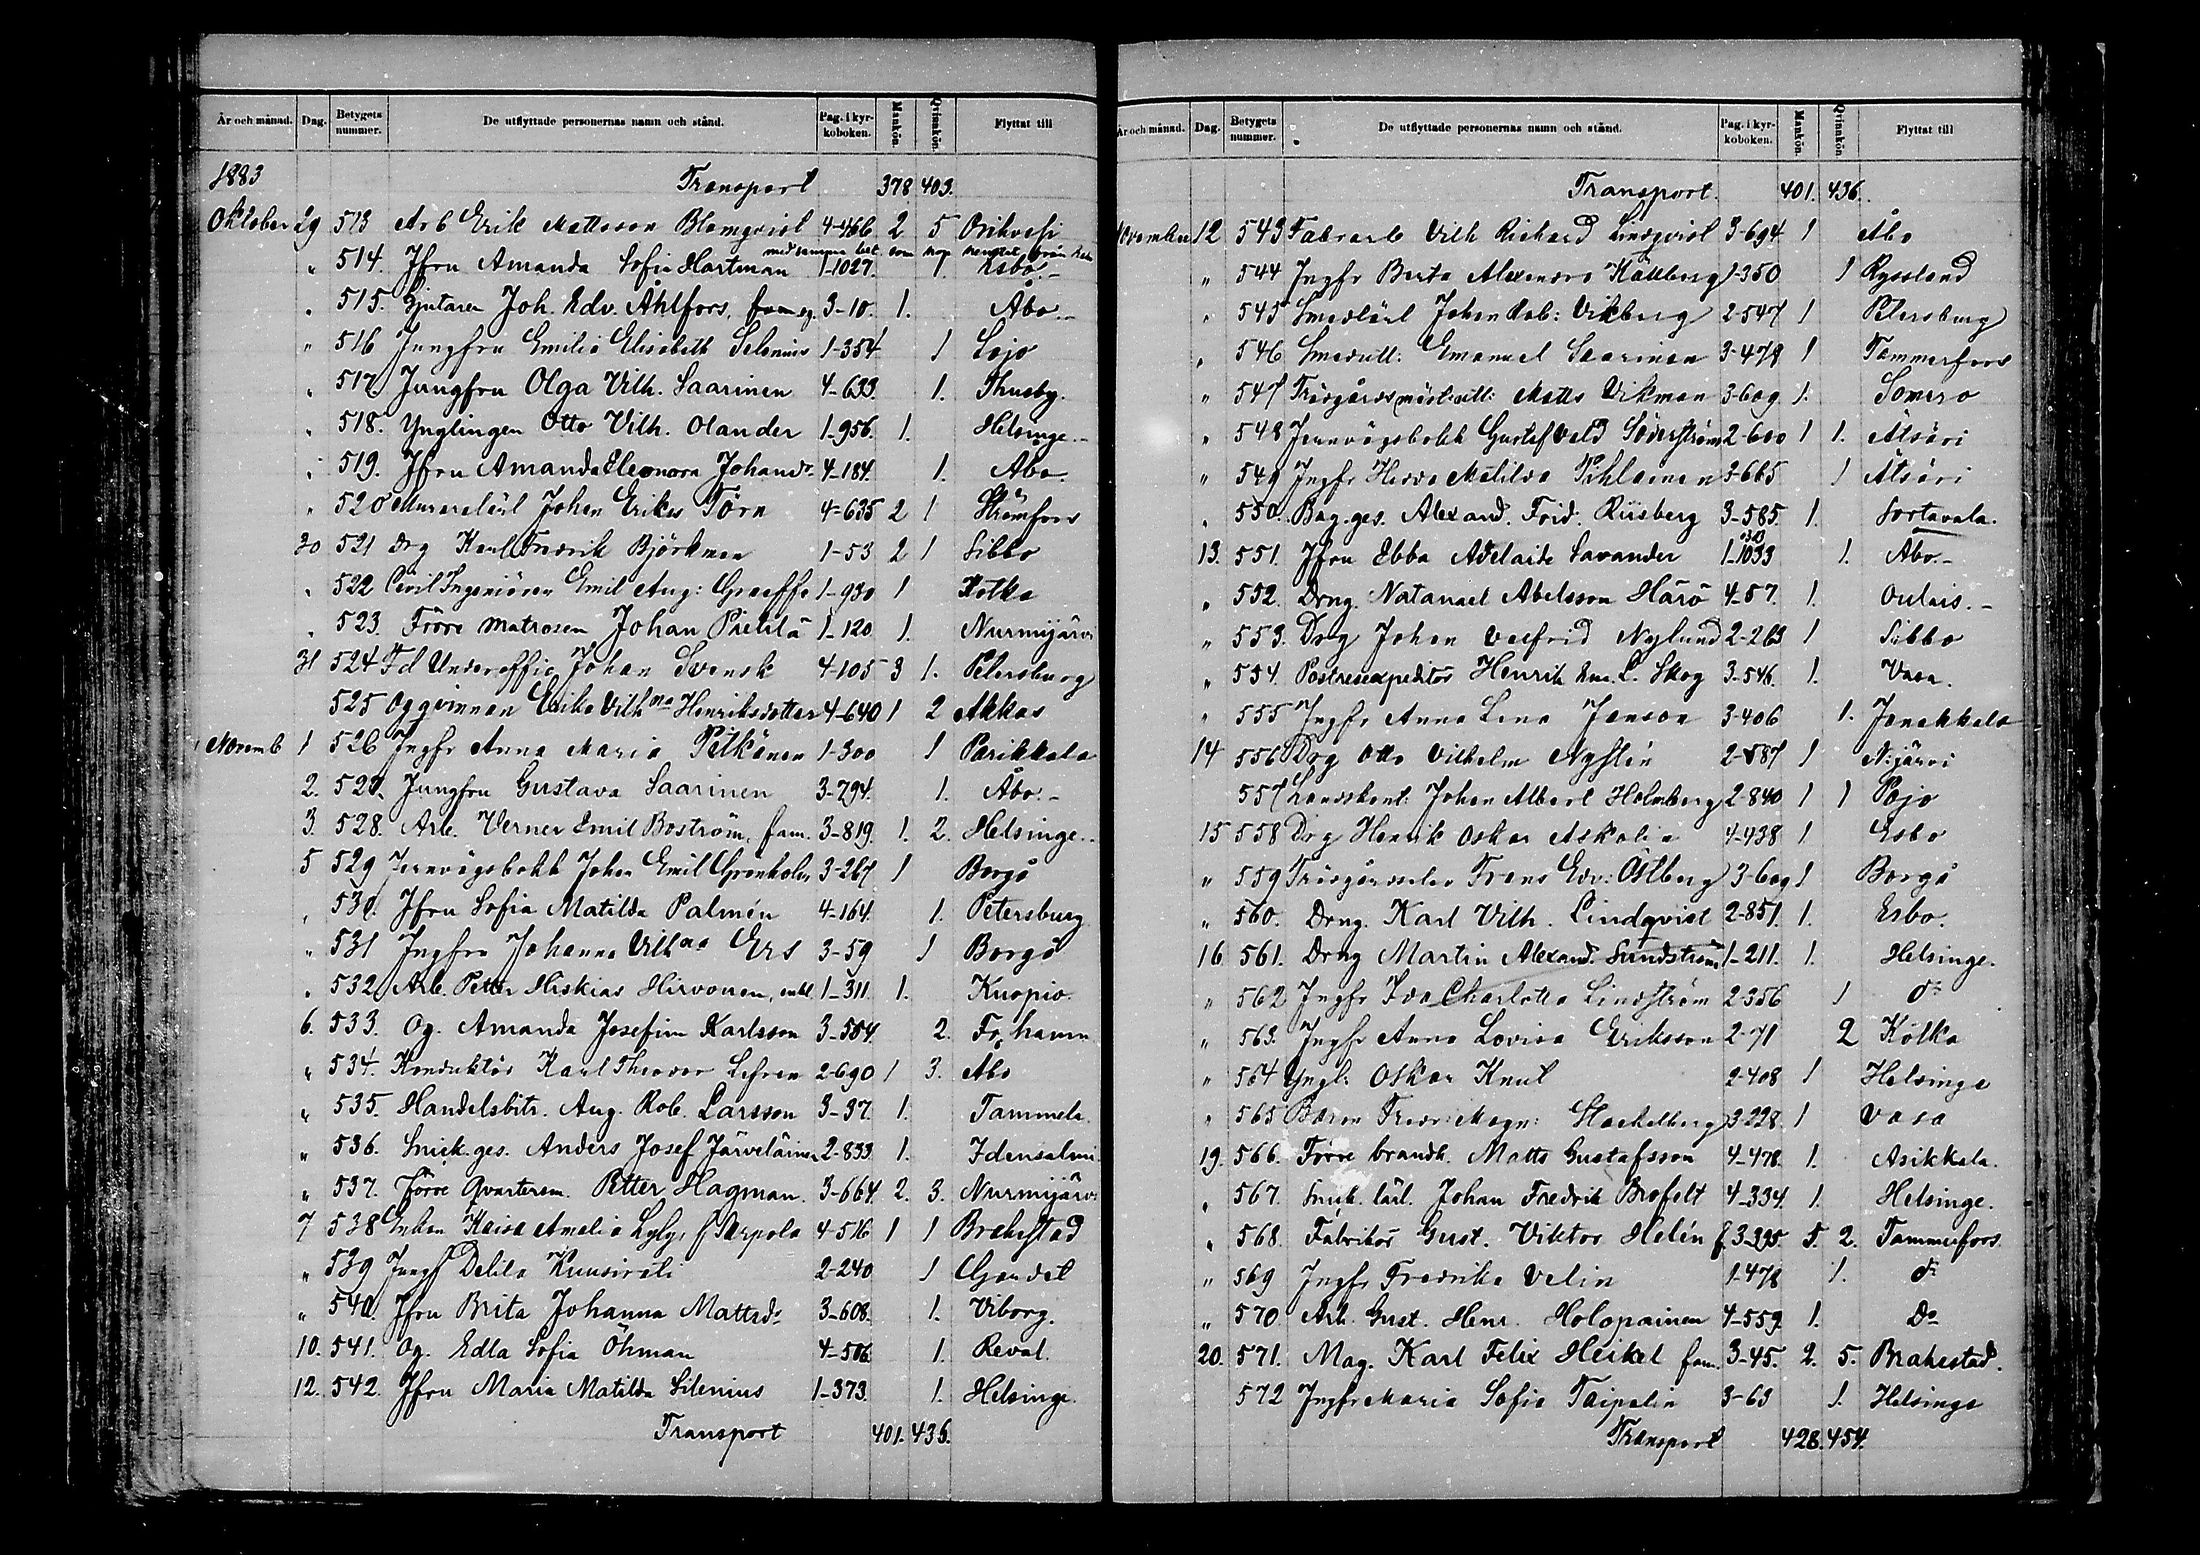 År och månad. Dag. Betygets nummer. De utflyttade personernas namn och stånd. Pag. i kyrkoboken. Mankön. Qvinnkön. Flyttat till
1883 Transport 378 403.
Oktober 29 513 Arb Erik Mattsson Blomqvist 4-466 2 5 Orihvesi
med samma bet som
" 514. Jfru Amanda Sofia Hartman 1-1027. 1. Esbo.-
" 515. Gjutaren Joh. Edv. Åhlfors, 3-10. 1. Åbo.-
" 516 Jungfru Emilia Elisabeth Selenius 1-354 1 Lojo
" 517. Jungfru Olga Vilh. Saarinen 4-633. 1. Thusby.
" 518. Ynglingen Otto Vilh. Olander 1-956. 1. Helsinge.-
" 519. Jfru Amanda Eleonora Johansdr. 4-184. 1. Åbo.
" 520 Murarelärl Johan Erikss Törn 4-635 2 1 Strömfors
30 521 Drg Karl Fredrik Björkman 1-53 2 1 Sibbo
" 522 Civil Ingeniören Emil Aug: Graeffe 1-930 1 Kotka
" 523. Förre matrosen Johan Pietilä 1-120 1. Nurmijärvi
31 524 Fd Underoffic Johan Svensk 4-105 3 1. Petersburg
525 Qvinnan Erika Vilhna Henriksdotter 4-640 1 2 Akkas
Novemb 1 526 Jngfr Anna Maria Pitkänen 1-300 1 Parikkala
2. 527. Jungfru Gustava Saarinen 3-794. 1. Åbo.-
3. 528. Arb. Verner Emil Boström, fam. 3-819. 1. 2. Helsinge.-
5 529 Jernvägsbokh Johan Emil Grönholm 3-267 1 Borgå
" 530. Jfru Sofia Matilda Palmén 4-164. 1. Petersburg
" 531 Jngfru Johanna Vilhna Ers 3-59 1 Borgå
" 532. Arb. Petter Hiskias Hirvonen, enkl. 1-311. 1. Kuopio.
6. 533. Qg. Amanda Josefina Karlsson 3-554. 2. Fr. hamn
" 534. Konduktör Karl Theodor Lefren 2-690 1 3. Åbo
" 535. Handelsbitr. Aug. Rob. Larsson 3-37. 1. Tammela.
" 536. Snick. ges. Anders Josef Järveläinen 2-833. 1. Idensalmi.
" 537. Förre Qvartersm. Petter Hagman. 3-664. 2. 3. Nurmijärvi
7 538 Enkan Kaisa Amalia Lyly, f Parpola 4-516 1 1 Brahestad
" 539 Jungf Delila Kuusirati 2-240 1
" 540. Jfru Brita Johanna Mattsdr. 3-608. 1. Viborg.
10. 541. Qg. Edla Sofia Öhman 4-506 1. Reval.
12. 542. Jfru Maria Matilda Silenius 1-373. 1. Helsinge.
Transport 401. 436.
År och månad. Dag. Betygets nummer. De utflyttade personernas namn och stånd. Pag. i kyrkoboken. Mankön. Qvinnkön. Flyttat till
Transport. 401. 436.
November 12 543 Fabrarb Vilh Richard Lindqvist 3-694 1 Åbo
" 544 Jngfr Berta Alexandra Källberg 1-350 1 Ryssland
" 545 Smedlärl Johan Rob: Vikberg 2-547 1 Petersburg
" 546 Smedutl: Emanuel Saarinen 3-479 1 Tammerfors
" 547 Trädgårdsmäst: utl: Matts Vikman 3-609 1. Somero
" 548 Jernvägsbokh Gustaf Vald Söderström 2-600 1 1. Ätsäri
" 549 Jngfr Hedda Matilda Pihlainen 3-665 1 Ätsäri
" 550. Bag. ges. Alexand. Frid. Riisberg 3-585. 1. Sortavala.
13. 551. Jfru Ebba Adelaide Savander 1-1033 1. Åbo.-
" 552. Drng. Natanael Abelsson Härö 4-57. 1. Oulais.-
" 553. Drg Johan Valfrid Nylund 2-263 1 Sibbo
" 554. Postresexpeditör Henrik L. Skog 3-546. 1. Vasa.
" 555 Jngfr Anna Lena Janson 3-406 1. Janakkala
14 556 Drg Otto Vilhelm Nystén 2-887 1 N:järvi
557 Landskont: Johan Albert Holmberg 2-840 1 1 Pojo
15 558 Drg Henrik Oskar Askolin 4-438 1 Esbo
" 559 Trädgårdselev Frans Edv: Östberg 3-609 1 Borgå
" 560. Drng. Karl Vilh. Lindqvist 2-851. 1. Esbo.
16 561. Drng Martin Alexand. Sundström 1-211. 1. Helsinge.
" 562 Jngfr Ida Charlotta Lindström 2-356 1 do
" 563. Jngfr Anna Lovisa Eriksson 2-71 2 Kotka
" 564 Yngl: Oskar Knut 2-408 1 Helsinge
" 565 Baron Fredr: Magn: Stackelberg 3-228. 1 Vasa
19. 566. Förre brandk. Matts Gustafsson 4-478. 1. Asikkala.
" 567. Snick. lärl. Johan Fredrik Brofelt 4-334. 1. Helsinge.
" 568. Fabrikör Gust. Viktor Helén f. 3-395. 5. 2. Tammerfors
" 569 Jngfr Fredrika Velin 1-478 1. do
" 570 Arb. Gust. Henr. Holopainen 4-559. 1. Do
20. 571. Mag. Karl Felix Heikel fam. 3-45. 2. 5. Brahestad.
572 Jngfr Maria Sofia Taipalin 3-63 1. Helsinge
Transport 428. 454.